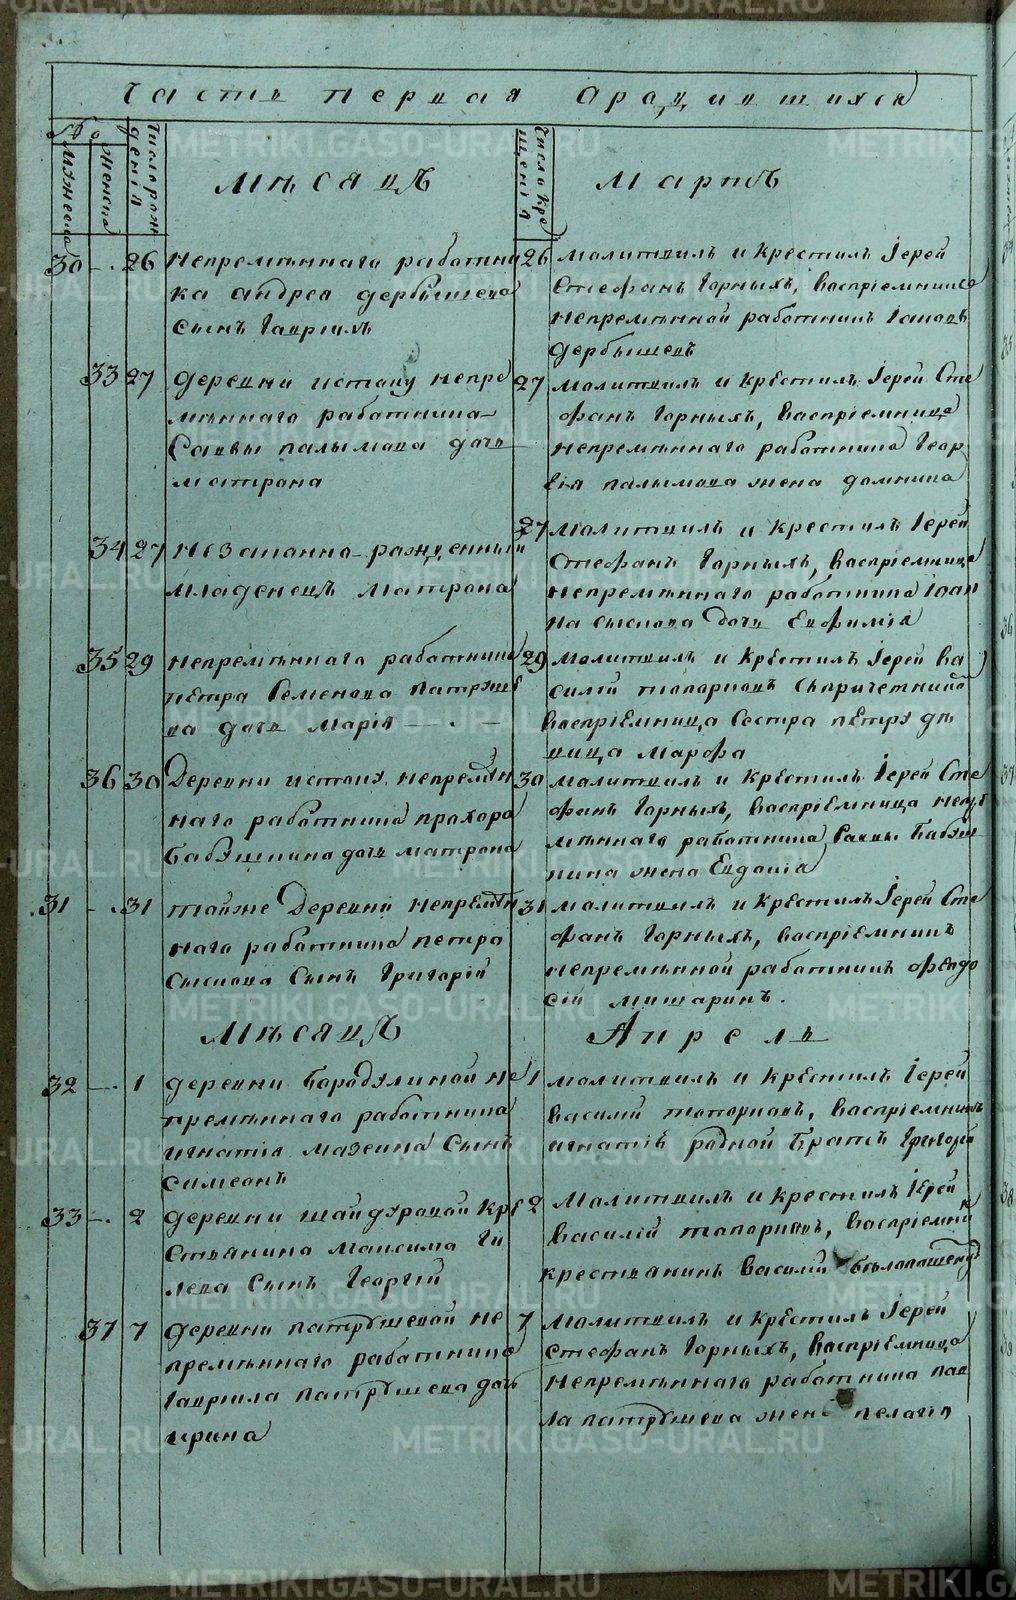 Часть первая о родившихся
№
мужеска
женска
Число рождения
Месяцъ
Число крещения
Мартъ
30 26 Непремѣннаго работни
ка Андрея Дербышева
сынъ Гаврiилъ
26 Молитвилъ и крестилъ Iерей
Стефанъ Горныхъ, воспрiемникъ
непремѣнной работникъ Iаковъ
Дербышевъ
33 27 Деревни Истоку непре
мѣннаго работника
Саввы Палымова дочь
Матрона
27 Молитвилъ и крестилъ Iерей Сте
фанъ Горныхъ, воспрiемница
непремѣннаго работника Геор
гiя Палымова жена Домника
34 27 Незаконно-рожденный
младенецъ Матрона
27 Молитвилъ и крестилъ Iерей
Стефанъ Горныхъ, воспрiемница
непремѣннаго работника Iоан
на Сыскова дочь Евфимiя
35 29 Непремѣннаго работника
Петра Семенова Патруше
ва дочь Марiя
29 Молитвилъ и крестилъ Iерей Ва
силiй Топорковъ съ причетники
воспрiемница сестра Петру дѣ
вица Марфа
36 30 Деревни Истоку непремѣн
наго работника Прохора
Бабушкина дочь Матрона
30 Молитвилъ и крестилъ Iерей Сте
фанъ Горныхъ, воспрiемница непре
мѣннаго работника Саввы Бабуш
кина жена Евдокiя
31 31 Той же деревни непремѣн
наго работника Петра
Сыскова сынъ Григорiй
31 Молитвилъ и крестилъ Iерей Сте
фанъ Горныхъ, воспрiемникъ
непремѣнной работникъ Феодо
сiй Мишаринъ.
Мѣсяцъ
Апрель
32 1 Деревни Бородулиной не
премѣннаго работника
Игнатiя Мазеина сынъ
Симеонъ
1 Молитвилъ и крестилъ Iерей
Василiй Топорковъ, воспрiемникъ
Игнатiю родной братъ Григорiй
33 2 Деревни Шайдуровой кре
стьянина Максима Ги
лева сынъ Георгiй
2 Молитвилъ и крестилъ Iерей
Василiй Топорковъ, воспрiемни
крестьянинъ Василiй
37 7 Деревни Патрушевой не
премѣннаго работника
Гаврила Патрушева дочь
Ирина
7 Молитвилъ и крестилъ Iерей
Стефанъ Горныхъ, воспрiемница
непремѣннаго работника Пав
ла Патрушева жена Пелагiя